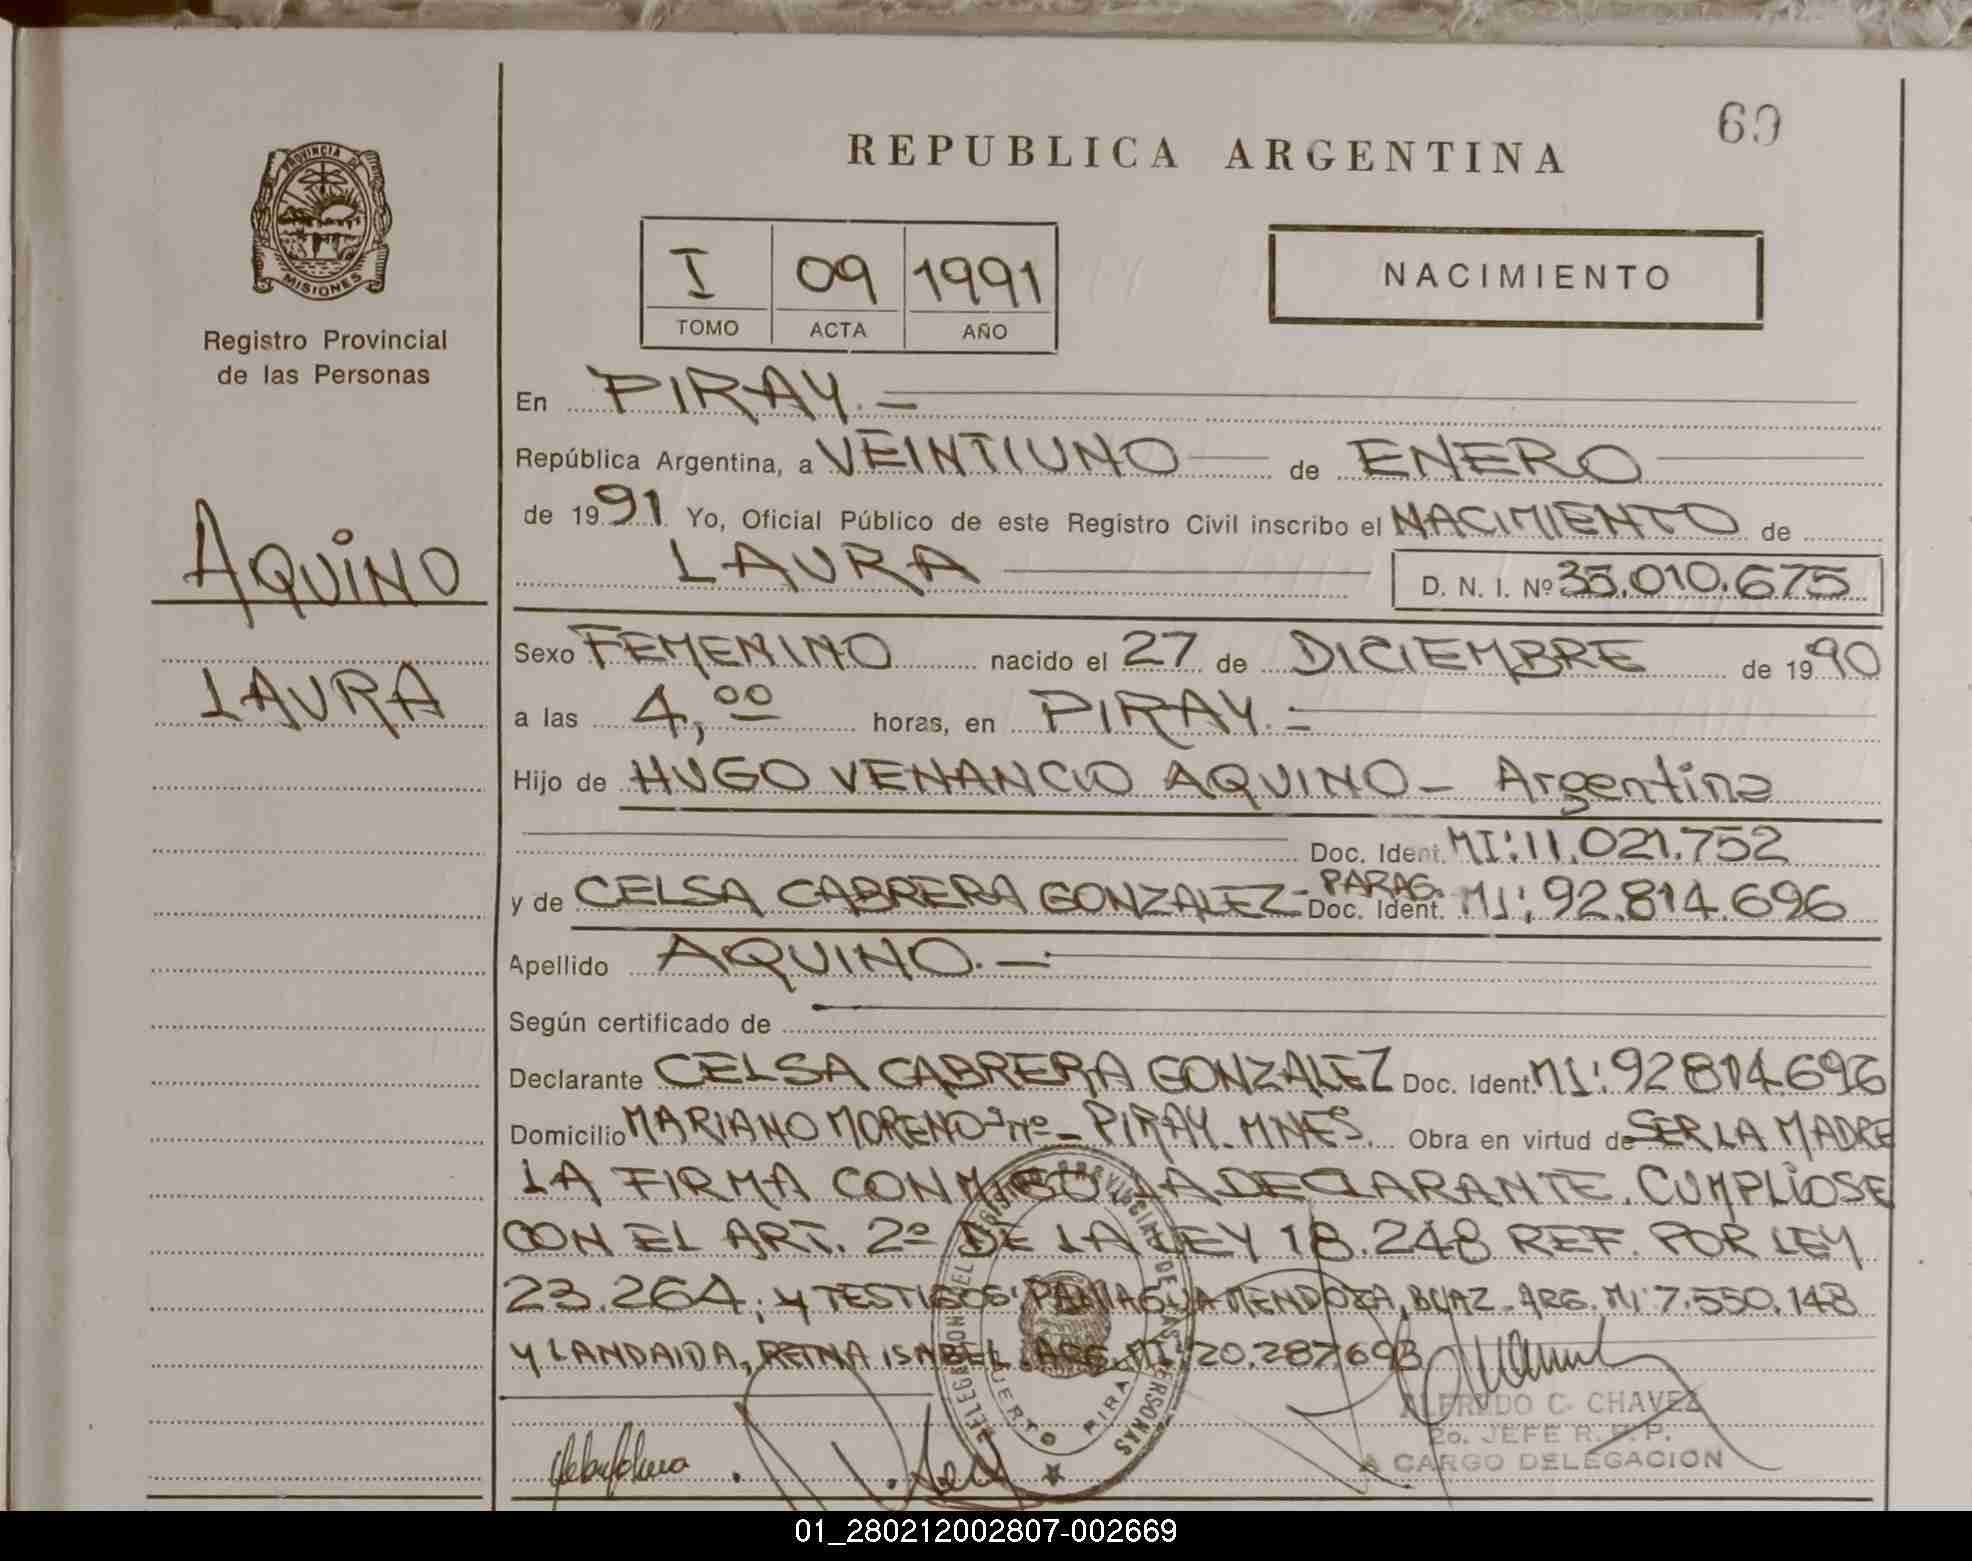 60
REPUBLICA ARGENTINA
PROVINCIA DE
MISIONES
Registro Provincial
de las Personas
I 09 1991
TOMO ACTA AÑO
NACIMIENTO
AQUINO
LAURA
En PIRAY.-
República Argentina, a VEINTIUNO de ENERO
de 1991 Yo, Oficial Público de este Registro Civil inscribo el NACIMIENTO de
LAURA D. N. I. Nº 35.010.675
Sexo FEMENINO nacido el 27 de DICIEMBRE de 1990
a las 4,00 horas, en PIRAY.-
Hijo de HUGO VENANCIO AQUINO - Argentina
Doc. Ident. MI: 11.021.752
y de CELSA CABRERA GONZALEZ - PARAG. Doc. Ident. MI: 92.814.696
Apellido AQUINO.-
Según certificado de
Declarante CELSA CABRERA GONZALEZ Doc. Ident. MI: 92814.696
Domicilio MARIANO MORENO s/nº - PIRAY. MNES. Obra en virtud de SER LA MADRE
LA FIRMA CONMIGO LA DECLARANTE. CUMPLIOSE
CON EL ART. 2º DE LA LEY 18.248 REF. POR LEY
23.264; Y TESTIGOS: PANIAGUA MENDOZA, BLAZ. ARG. MI 7.550.148
Y LANDAIDA, REINA ISABEL. ARG. MI: 20.287693
DELEGACION DEL REGISTRO PROVINCIAL DE LAS PERSONAS
PUERTO PIRAY
ALFREDO C. CHAVEZ
2o. JEFE R.P.P.
A CARGO DELEGACION
01_280212002807-002669